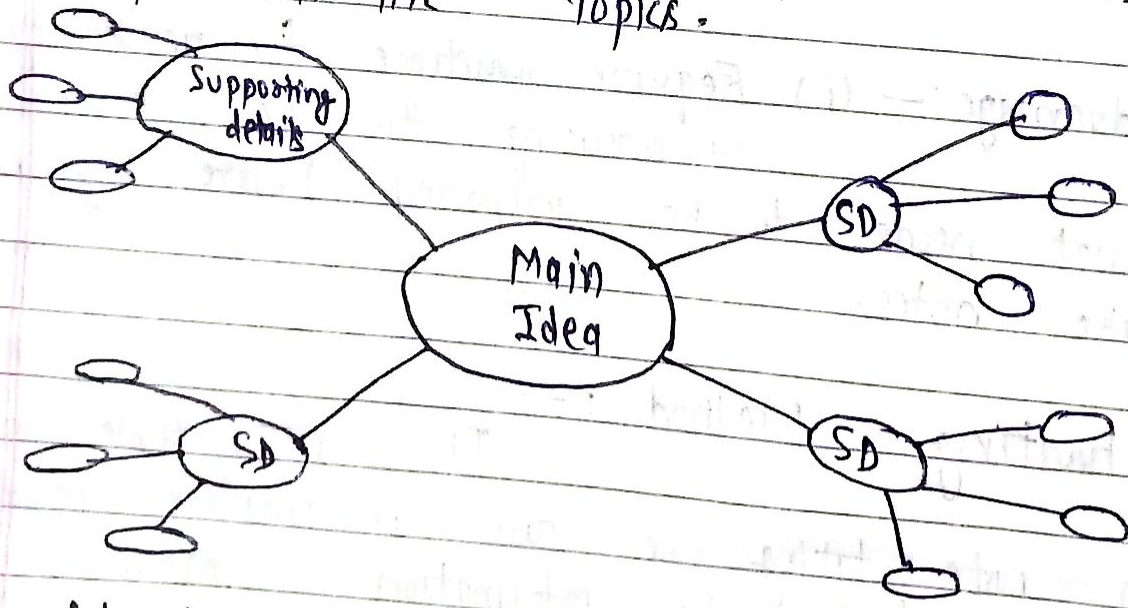 Topics.
Supporting
details
SD
Main
Idea
SD
SD